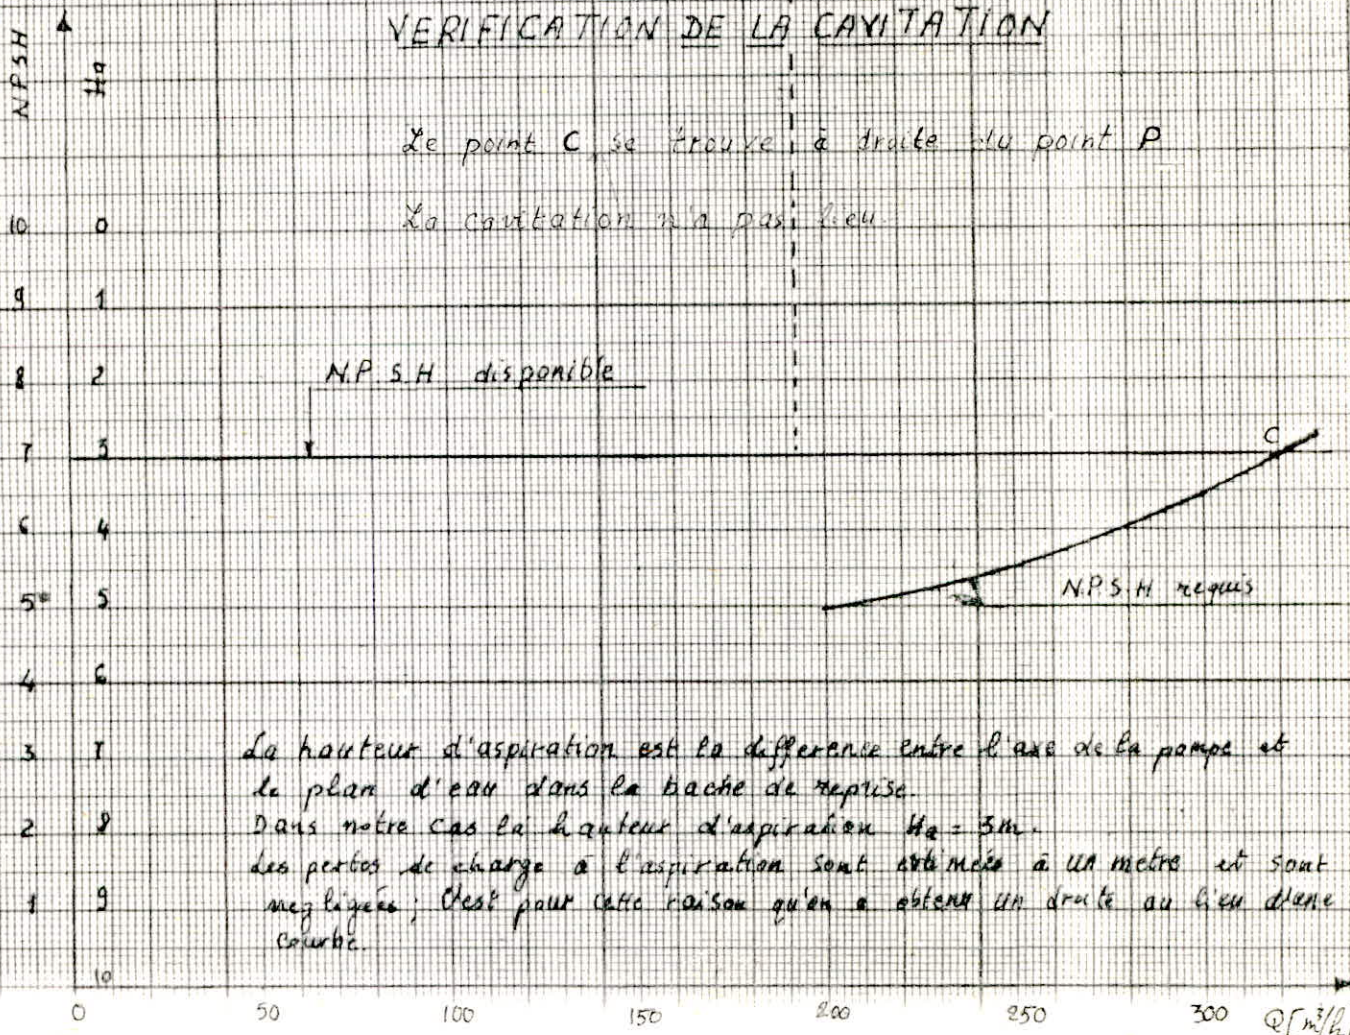 VERIFICATION DE LA CAVITATION
NPSH
Ha
Le point C se trouve à droite du point P
La cavitation n'a pas lieu.
10 0
9 1
N.P.S.H disponible
8 2
7 3
C
6 4
N.P.S.H requis
5 5
4 6
3 7
La hauteur d'aspiration est la difference entre l'axe de la pompe et
le plan d'eau dans la bache de reprise.
2 8
Dans notre cas la hauteur d'aspiration Ha = 3m.
Les pertes de charge à l'aspiration sont estimées à un metre et sont
1 9
negligées ; C'est pour cette raison qu'on a obtenu un droite au lieu d'une
courbe.
10
0 50 100 150 200 250 300 Q[m³/h